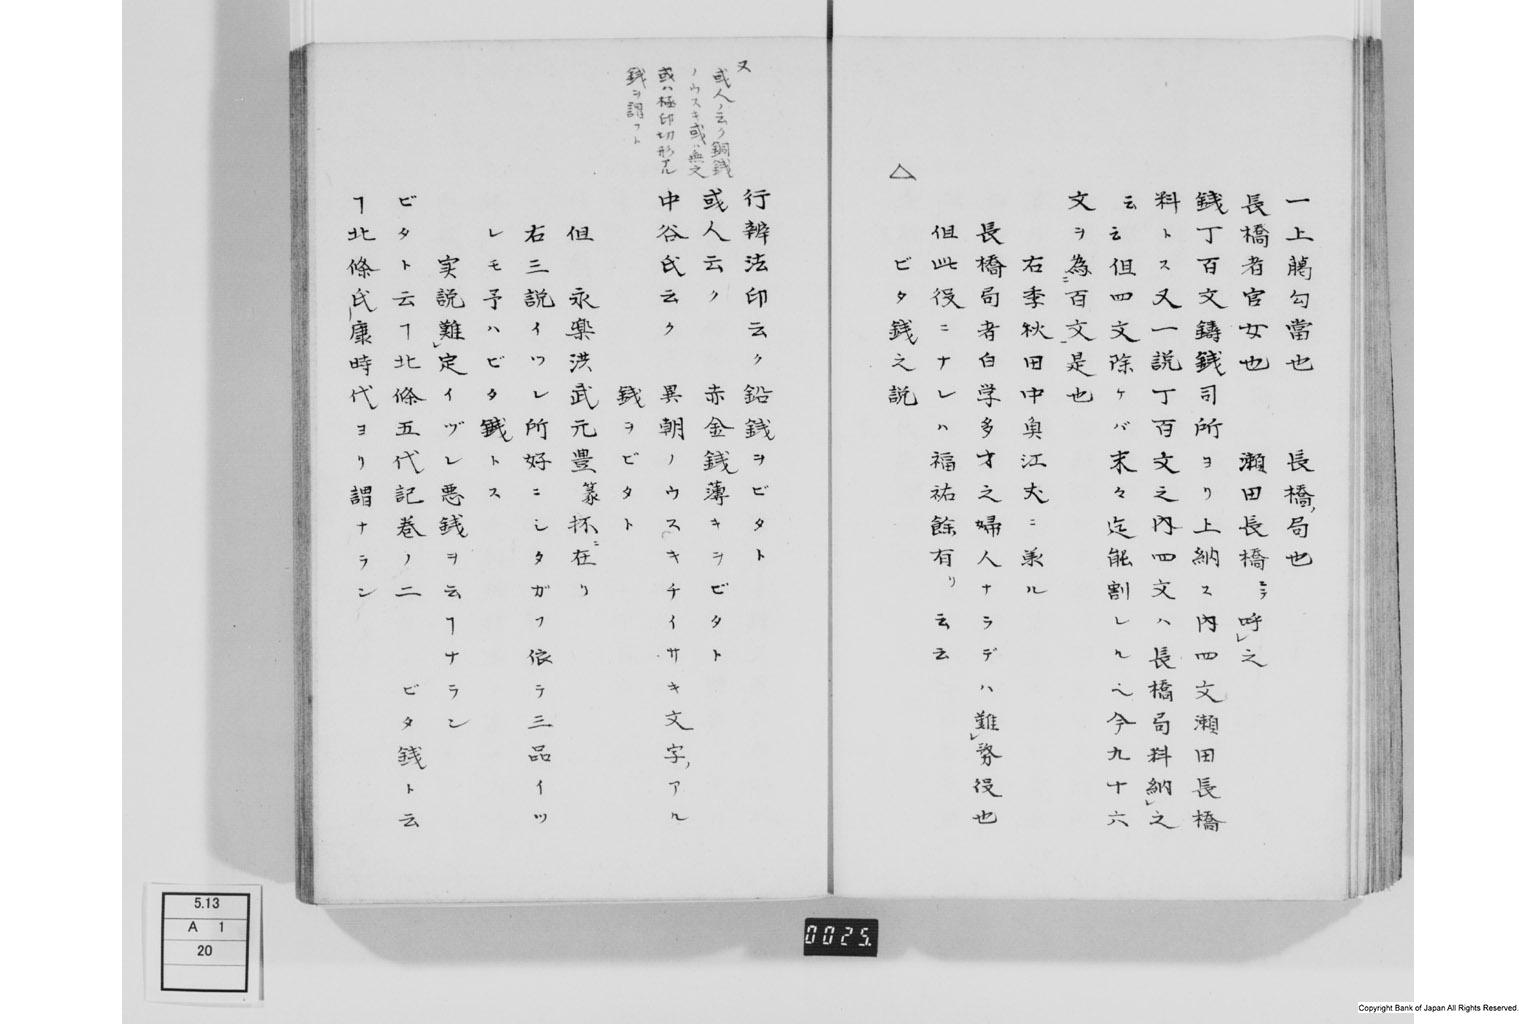 一上﨟勾當也　　長橋ノ局也
長橋者官女也　　瀬田長橋ト云フ呼レ之
銭丁百文鋳銭司所ヨリ上納ス内四文瀬田長橋
料トス又一説丁百文之内四文ハ長橋局料納レ之
云云但四文除ケバ末々迄能割レル故今九十六
文ヲ為ニ百文ー是也
右季秋田中奥江丈ニ兼ル
長橋局者白学多才之婦人ナラデハ難レ務役也
但此役ニナレハ福祐餘有リ云云
△
ビタ銭之説
又
或人ノ云ク銅銭
ノウスキ或ハ無文
或ハ極印切形アル
銭ヲ謂フト
行辨法印云ク鉛銭ヲビタト
或人云ク　赤金銭薄キヲビタト
中谷氏云ク　異朝ノウスキチイサキ文字ノアル
銭ヲビタト
但　永楽洪武元豊篆抔ニ在リ
右三説イツレ所好ニシタガフ依テ三品イツ
レモ予ハビタ銭トス
実説難レ定イヅレ悪銭ヲ云ヿナラン
ビタト云ヿ北條五代記巻ノ二　ビタ銭ト云
ヿ北條氏康時代ヨリ謂ナラン
5.13
A 1
20
0025.
Copyright Bank of Japan All Rights Reserved.